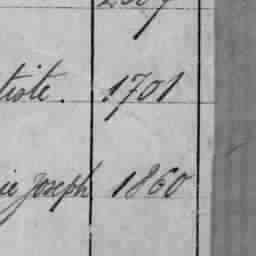 tiste. 1701
ie Joseph 1860